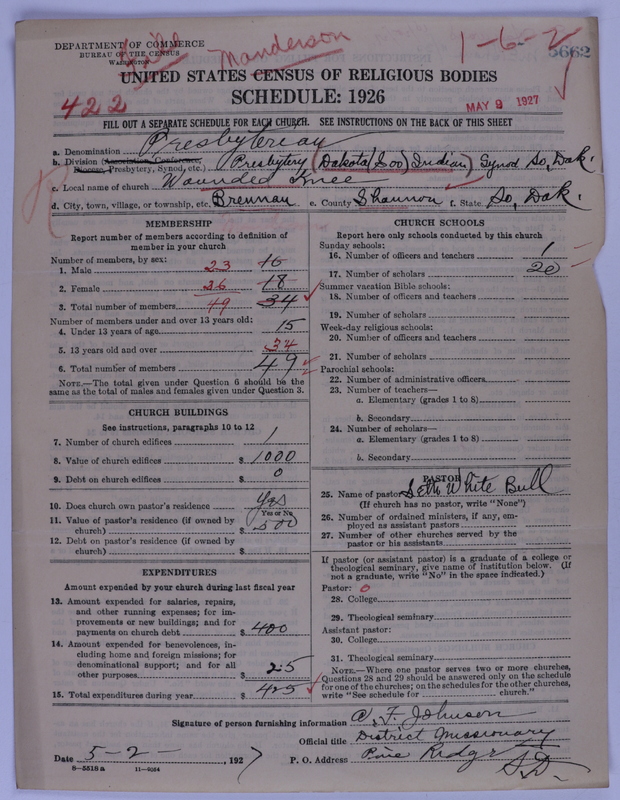 DEPARTMENT OF COMMERCE
BUREAU OF THE CENSUS
WASHINGTON
Manderson
1-6-2
5662
UNITED STATES CENSUS OF RELIGIOUS BODIES
SCHEDULE: 1926
422
MAY 9 1927
FILL OUT A SEPARATE SCHEDULE FOR EACH CHURCH. SEE INSTRUCTIONS ON THE BACK OF THIS SHEET
a. Denomination Presbyterian
b. Division (Association, Conference, Diocese, Presbytery, Synod, etc.) Presbytery (Dakota (Soo) Indian) Synod So, Dak.
c. Local name of church Wounded Knee
d. City, town, village, or township, etc. Brennan e. County Shannon f. State So, Dak.
MEMBERSHIP
Report number of members according to definition of
member in your church
Number of members, by sex:
1. Male 23 16
2. Female 26 18
3. Total number of members 49 34
Number of members under and over 13 years old:
4. Under 13 years of age 15
5. 13 years old and over 34
6. Total number of members 49
NOTE.—The total given under Question 6 should be the
same as the total of males and females given under Question 3.
CHURCH BUILDINGS
See instructions, paragraphs 10 to 12
7. Number of church edifices 1
8. Value of church edifices $ 1000
9. Debt on church edifices $ 0
10. Does church own pastor's residence Yes
Yes or No
11. Value of pastor's residence (if owned by
church) $ 500
12. Debt on pastor's residence (if owned by
church) $
EXPENDITURES
Amount expended by your church during last fiscal year
13. Amount expended for salaries, repairs,
and other running expenses; for im-
provements or new buildings; and for
payments on church debt $ 400
14. Amount expended for benevolences, in-
cluding home and foreign missions; for
denominational support; and for all
other purposes $ 25
15. Total expenditures during year $ 425
CHURCH SCHOOLS
Report here only schools conducted by this church
Sunday schools:
16. Number of officers and teachers 1
17. Number of scholars 20
Summer vacation Bible schools:
18. Number of officers and teachers
19. Number of scholars
Week-day religious schools:
20. Number of officers and teachers
21. Number of scholars
Parochial schools:
22. Number of administrative officers
23. Number of teachers—
a. Elementary (grades 1 to 8)
b. Secondary
24. Number of scholars—
a. Elementary (grades 1 to 8)
b. Secondary
PASTOR
25. Name of pastor Seth White Bull
(If church has no pastor, write "None")
26. Number of ordained ministers, if any, em-
ployed as assistant pastors
27. Number of other churches served by the
pastor or his assistants
If pastor (or assistant pastor) is a graduate of a college or
theological seminary, give name of institution below. (If
not a graduate, write "No" in the space indicated.)
Pastor: 0
28. College
29. Theological seminary
Assistant pastor:
30. College
31. Theological seminary
NOTE.—Where one pastor serves two or more churches,
Questions 28 and 29 should be answered only on the schedule
for one of the churches; on the schedules for the other churches,
write "See schedule for church."
Signature of person furnishing information A. F. Johnson
Official title District Missionary
Date 5-2- , 1927 P. O. Address Pine Ridge
S.D.
8-5518 a 11-9054